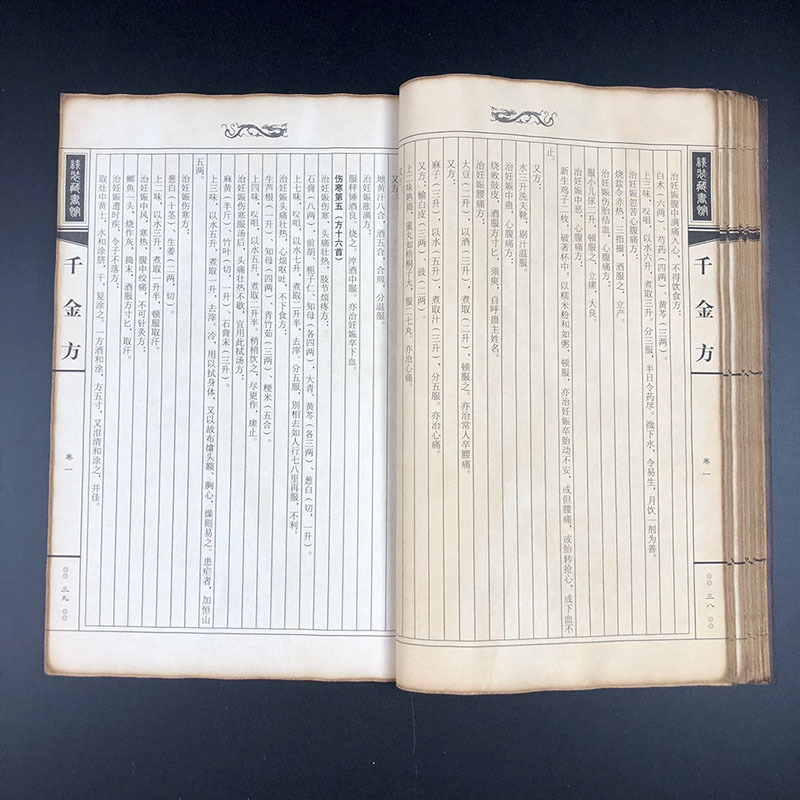 线装藏书馆
千金方
卷一
〇〇三八〇〇
治妊娠腹中满痛入心，不得饮食方：
白术（六两）、芍药（四两）、黄芩（三两）。
上三味，㕮咀，以水六升，煮取三升。分三服，半日令药尽。微下水，令易生，月饮一剂为善。
治妊娠忽苦心腹痛方：
烧盐令赤热，三指撮，酒服之，立产。
治妊娠伤胎结血，心腹痛方：
服小儿尿二升，顿服之，立瘥，大良。
治妊娠中恶，心腹痛方：
新生鸡子二枚，破著杯中，以糯米粉和如粥，顿服。亦治妊娠卒胎动不安，或但腰痛，或胎转抢心，或下血不
止。
又方：
水三升洗夫靴，剔汁温服。
治妊娠中蛊，心腹痛方：
烧败鼓皮，酒服方寸匕，须臾，自呼蛊主姓名。
治妊娠腰痛方：
大豆（二升），以酒（三升），煮取（二升），顿服之。亦治常人卒腰痛。
又方：
麻子（三升），以水（五升），煮取汁（三升），分五服。亦治心痛。
又方：榆白皮（三两）、豉（二两）。
上二味熟捣，蜜丸如梧桐子大，服二七丸，亦治心痛。
又方：
地黄汁八合，酒五合，合煎，分温服。
治妊娠胀满方：
服秤锤酒良，烧之，淬酒中服。亦治妊娠卒下血。
伤寒第五（方十六首）
治妊娠伤寒，头痛壮热，肢节烦疼方：
石膏（八两），前胡、栀子仁、知母（各四两），大青、黄芩（各三两），葱白（切，一升）。
上七味，㕮咀，以水七升，煮取二升半，去滓。分五服，别相去如人行七八里再服，不利。
治妊娠头痛壮热，心烦呕吐，不下食方：
生芦根（一升）、知母（四两）、青竹茹（三两）、粳米（五合）。
上四味，㕮咀，以水五升，煮取二升半。稍稍饮之，尽更作，瘥止。
治妊娠伤寒服汤后，头痛壮热不歇，宜用此拭汤方：
麻黄（半斤）、竹叶（切，一升）、石膏末（三升）。
上三味，以水五升，煮取一升，去滓。冷，用以拭身体，又以故布搶头额、胸心，燥则易之。患疟者，加恒山
五两。
治妊娠伤寒方：
葱白（十茎）、生姜（二两，切）。
上二味，以水三升，煮取一升半，顿服取汗。
治妊娠中风，寒热，腹中绞痛，不可针灸方：
鲫鱼一头，烧作灰，捣末，酒服方寸匕，取汗。
治妊娠遭时疾，令子不落方：
取灶中黄土，水和涂脐，干，复涂之。一方酒和涂，方五寸，又泔清和涂之，并佳。
线装藏书馆
千金方
卷一
〇〇三九〇〇